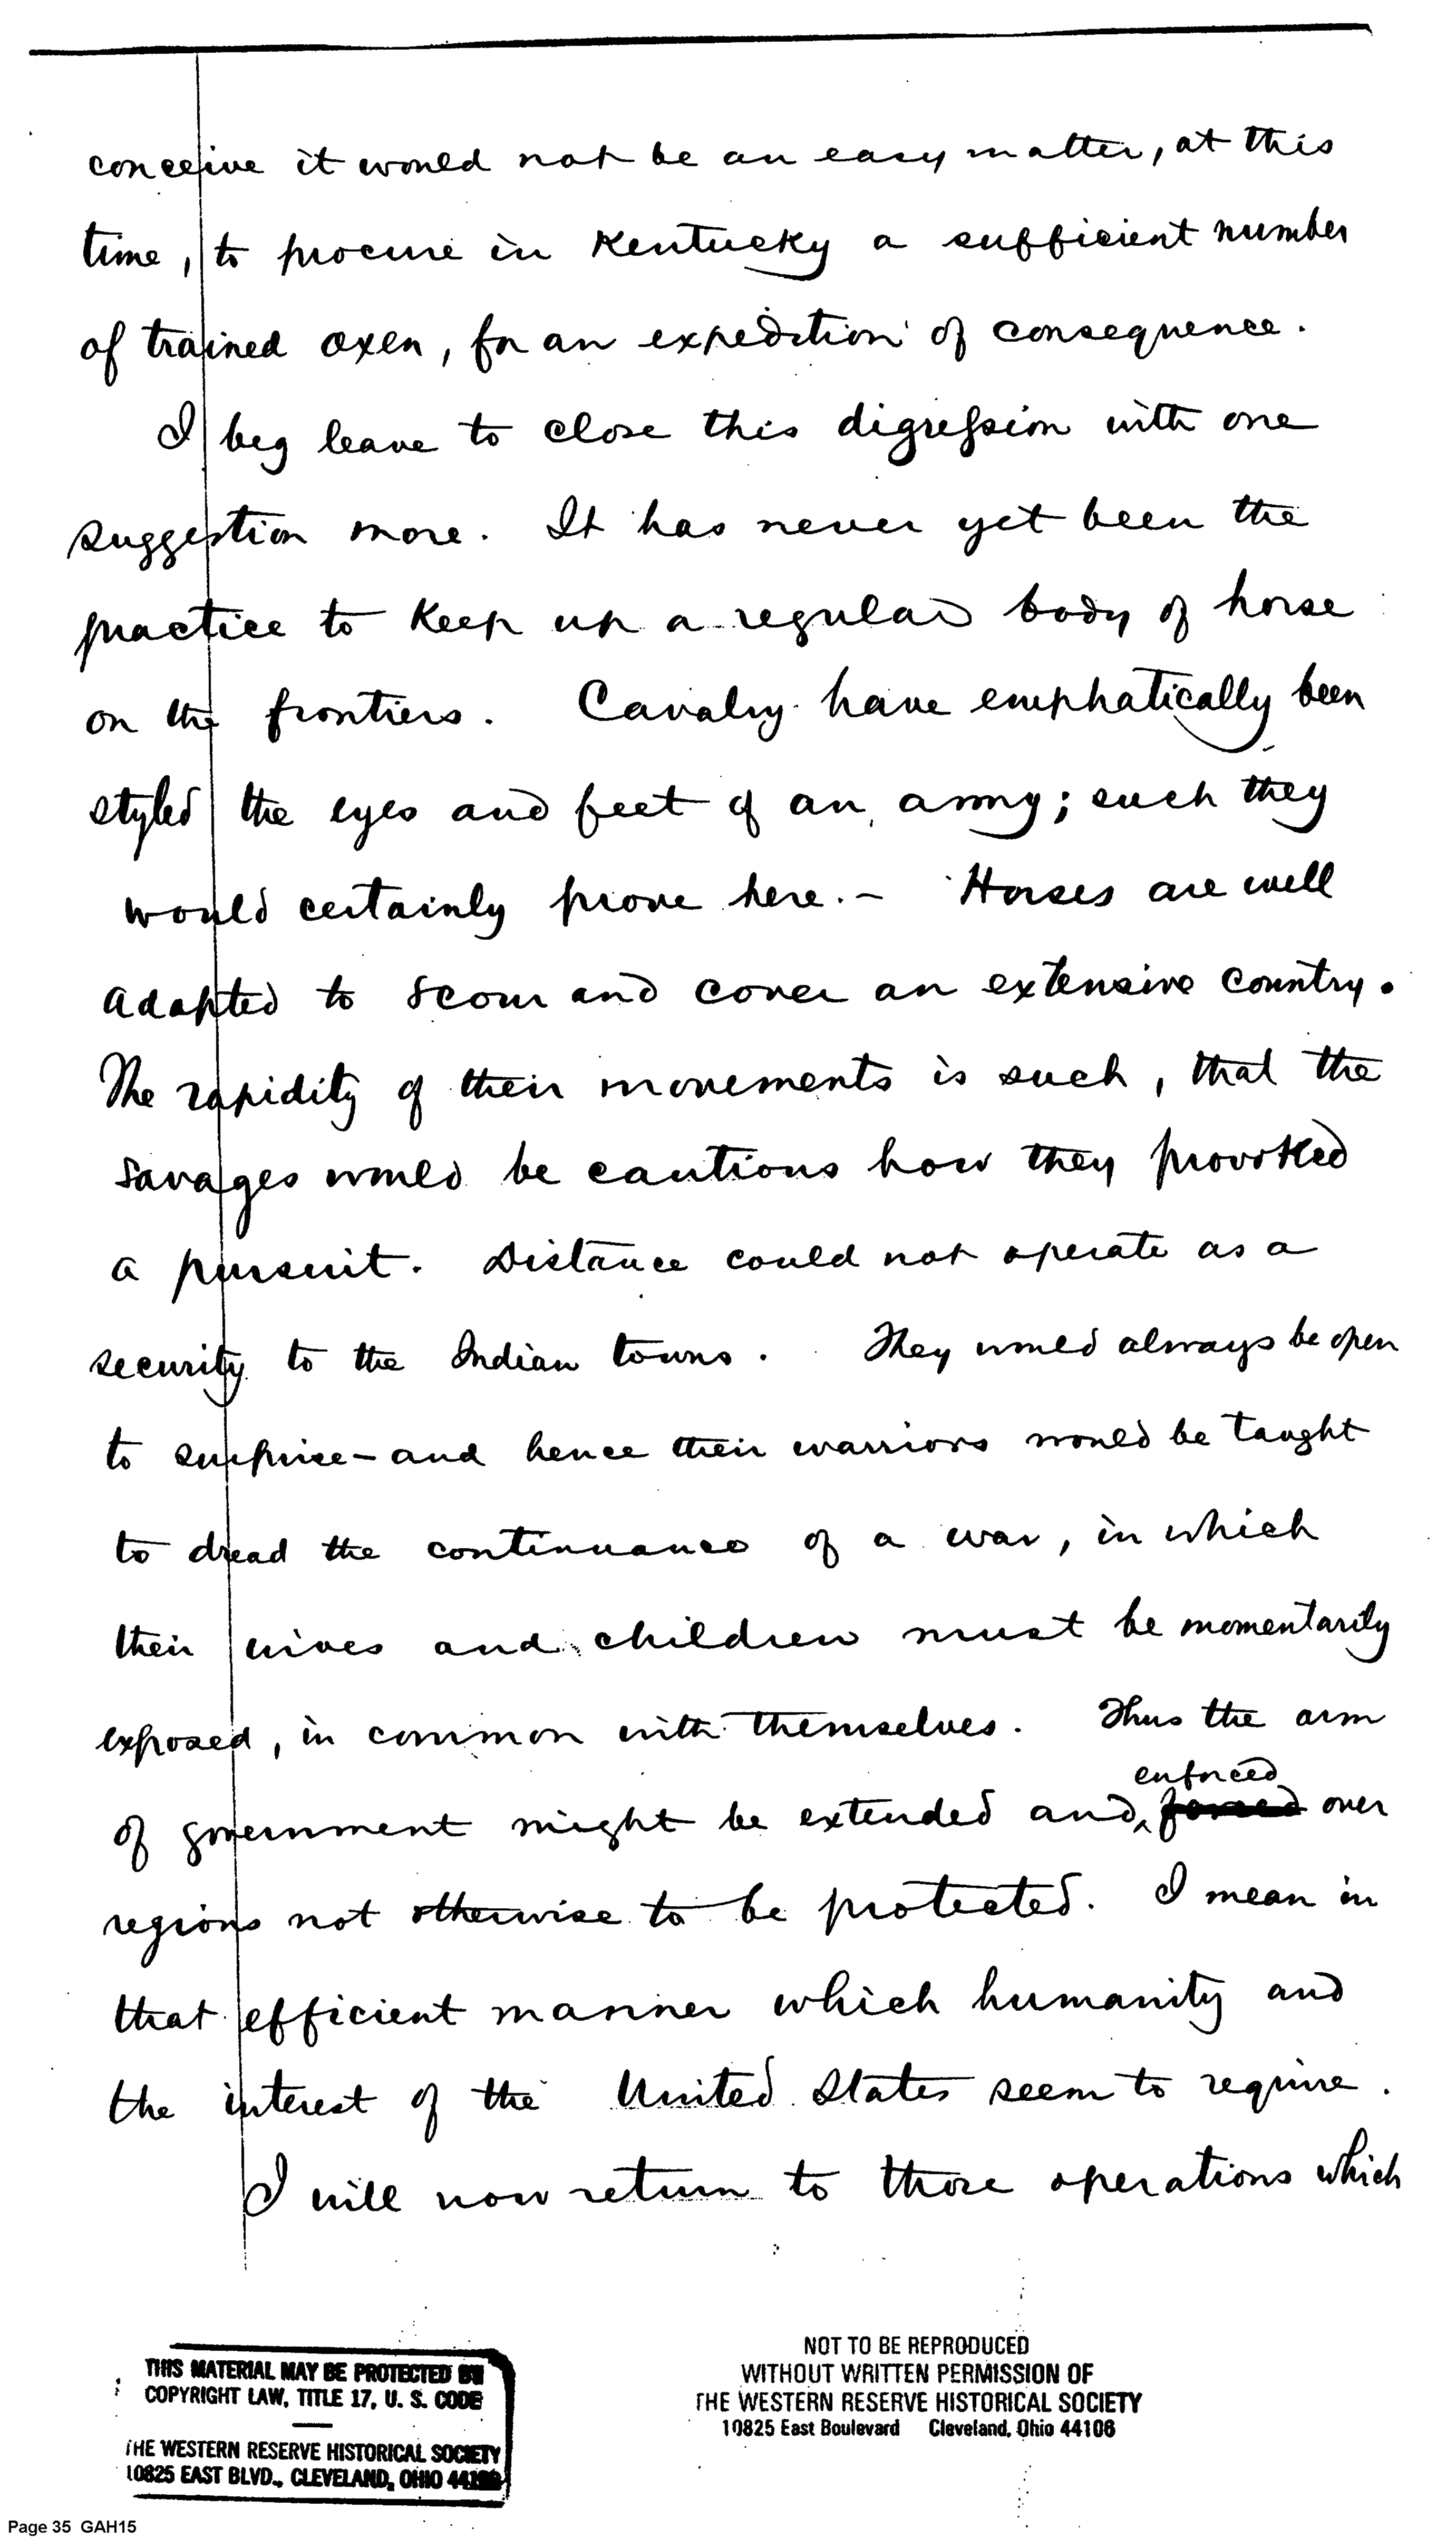 conceive it would not be an easy matter, at this
time, to procure in Kentucky a sufficient number
of trained oxen, for an expedition of consequence.
I beg leave to close this digression with one
suggestion more. It has never yet been the
practice to keep up a regular body of horse
on the frontiers. Cavalry have emphatically been
styled the eyes and feet of an army; such they
would certainly prove here. - Horses are well
adapted to scour and cover an extensive country.
The rapidity of their movements is such, that the
savages would be cautious how they provoked
a pursuit. Distance could not operate as a
security to the Indian towns. They would always be open
to surprise - and hence their warriors would be taught
to dread the continuance of a war, in which
their wives and children must be momentarily
exposed, in common with themselves. Thus the arm
enforced
of government might be extended and forced over
regions not otherwise to be protected. I mean in
that efficient manner which humanity and
the interest of the United States seem to require.
I will now return to those operations which
THIS MATERIAL MAY BE PROTECTED BY
COPYRIGHT LAW, TITLE 17, U. S. CODE
THE WESTERN RESERVE HISTORICAL SOCIETY
10825 EAST BLVD., CLEVELAND, OHIO 44106
NOT TO BE REPRODUCED
WITHOUT WRITTEN PERMISSION OF
THE WESTERN RESERVE HISTORICAL SOCIETY
10825 East Boulevard Cleveland, Ohio 44106
Page 35 GAH15